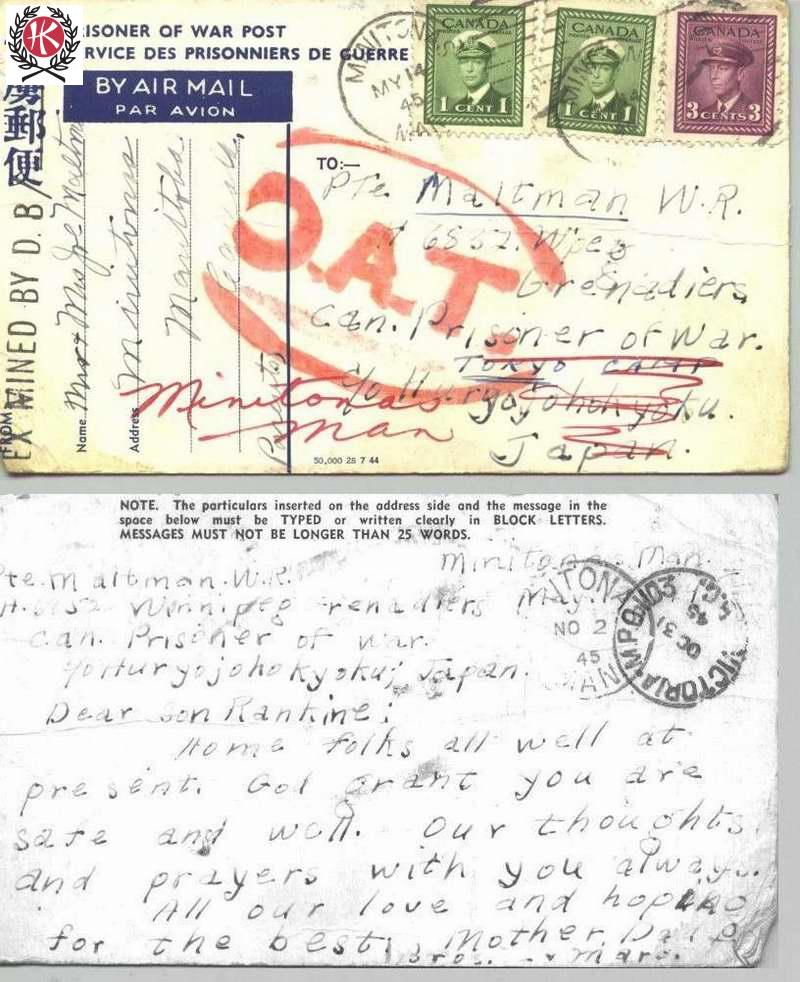 HK
RISONER OF WAR POST
RVICE DES PRISONNIERS DE GUERRE
BY AIR MAIL
PAR AVION
郵便
EXAMINED BY D.B/
FROM:
Name
Mr & Mrs Joe Maltman
Address
Minitonas
Manitoba
Canada
Parents
CANADA
1 CENT 1
CANADA
1 CENT 1
CANADA
3 CENTS 3
MY 14
45
O.A.T.
TO:—
Pte. Maltman W.R.
H 6532. Wpeg
Grenadiers
Can. Prisoner of War.
TOKYO CAMP
c/o Huryojohokyoku.
Japan.
Minitonas
Man
50,000 28 7 44
NOTE. The particulars inserted on the address side and the message in the
space below must be TYPED or written clearly in BLOCK LETTERS.
MESSAGES MUST NOT BE LONGER THAN 25 WORDS.
Minitonas. Man.
Pte. Maltman. W.R.
Winnipeg Grenadiers May
Can. Prisoner of war.
Huryojohokyoku; Japan.
NO 2
45
MPO 1103
OC 31
45
VICTORIA B.C.
Dear Son Rankine;
Home folks all well at
present. God grant you are
safe and well. Our thoughts
and prayers with you always.
All our love and hoping
for the best. Mother, Dad
Bros. Marg.